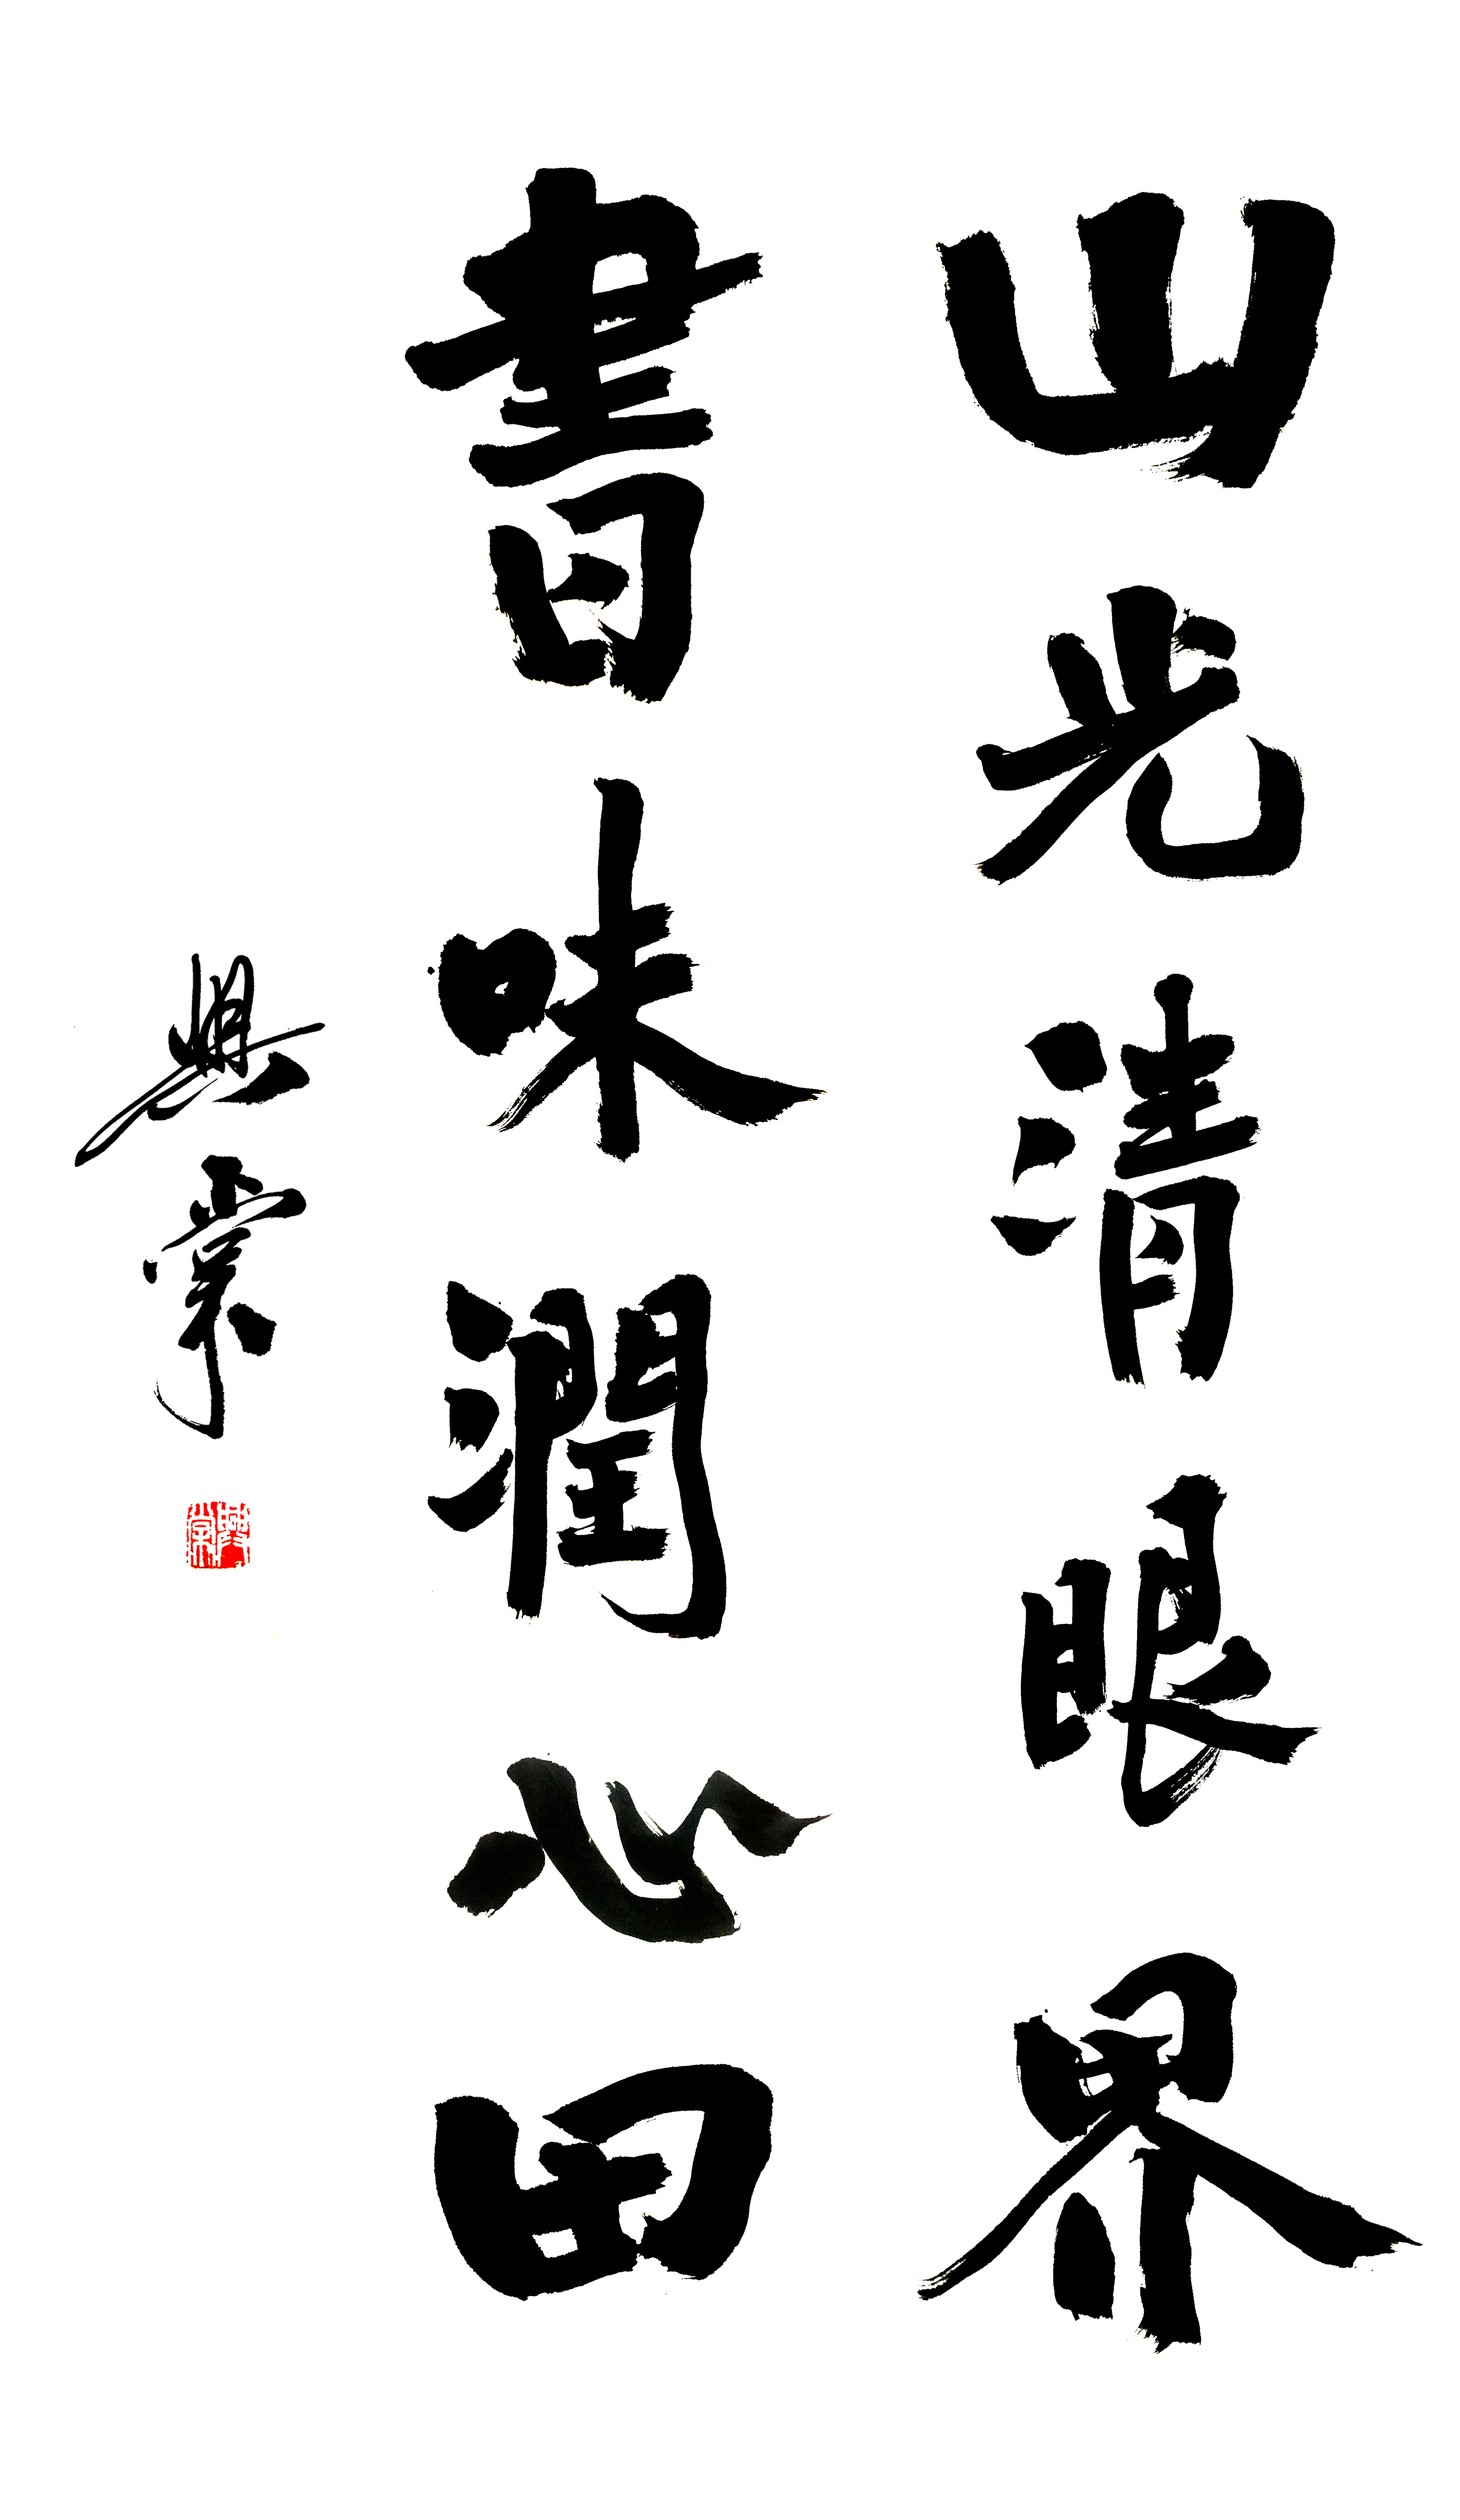 山光清眼界
書味潤心田
興業